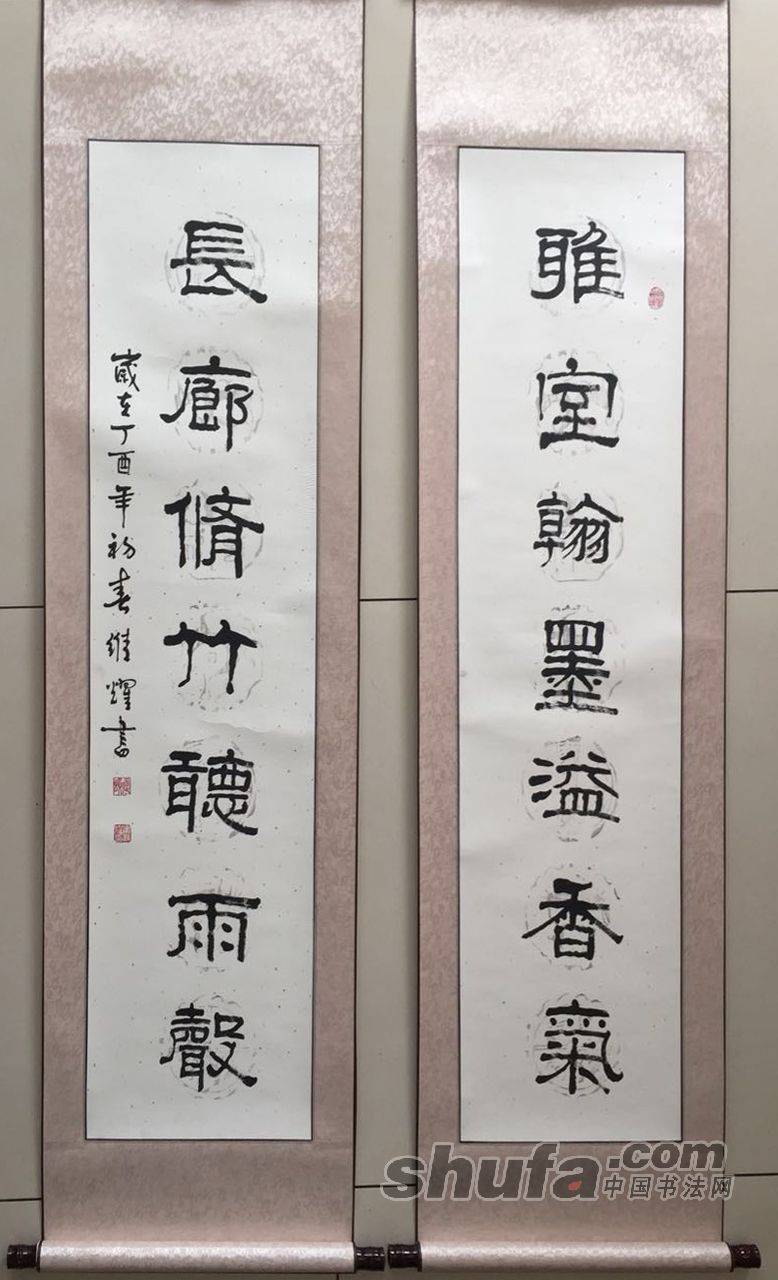 雅室翰墨溢香氣
長廊脩竹聽雨聲
歲在丁酉年初春繼耀書
shufa.com
中国书法网